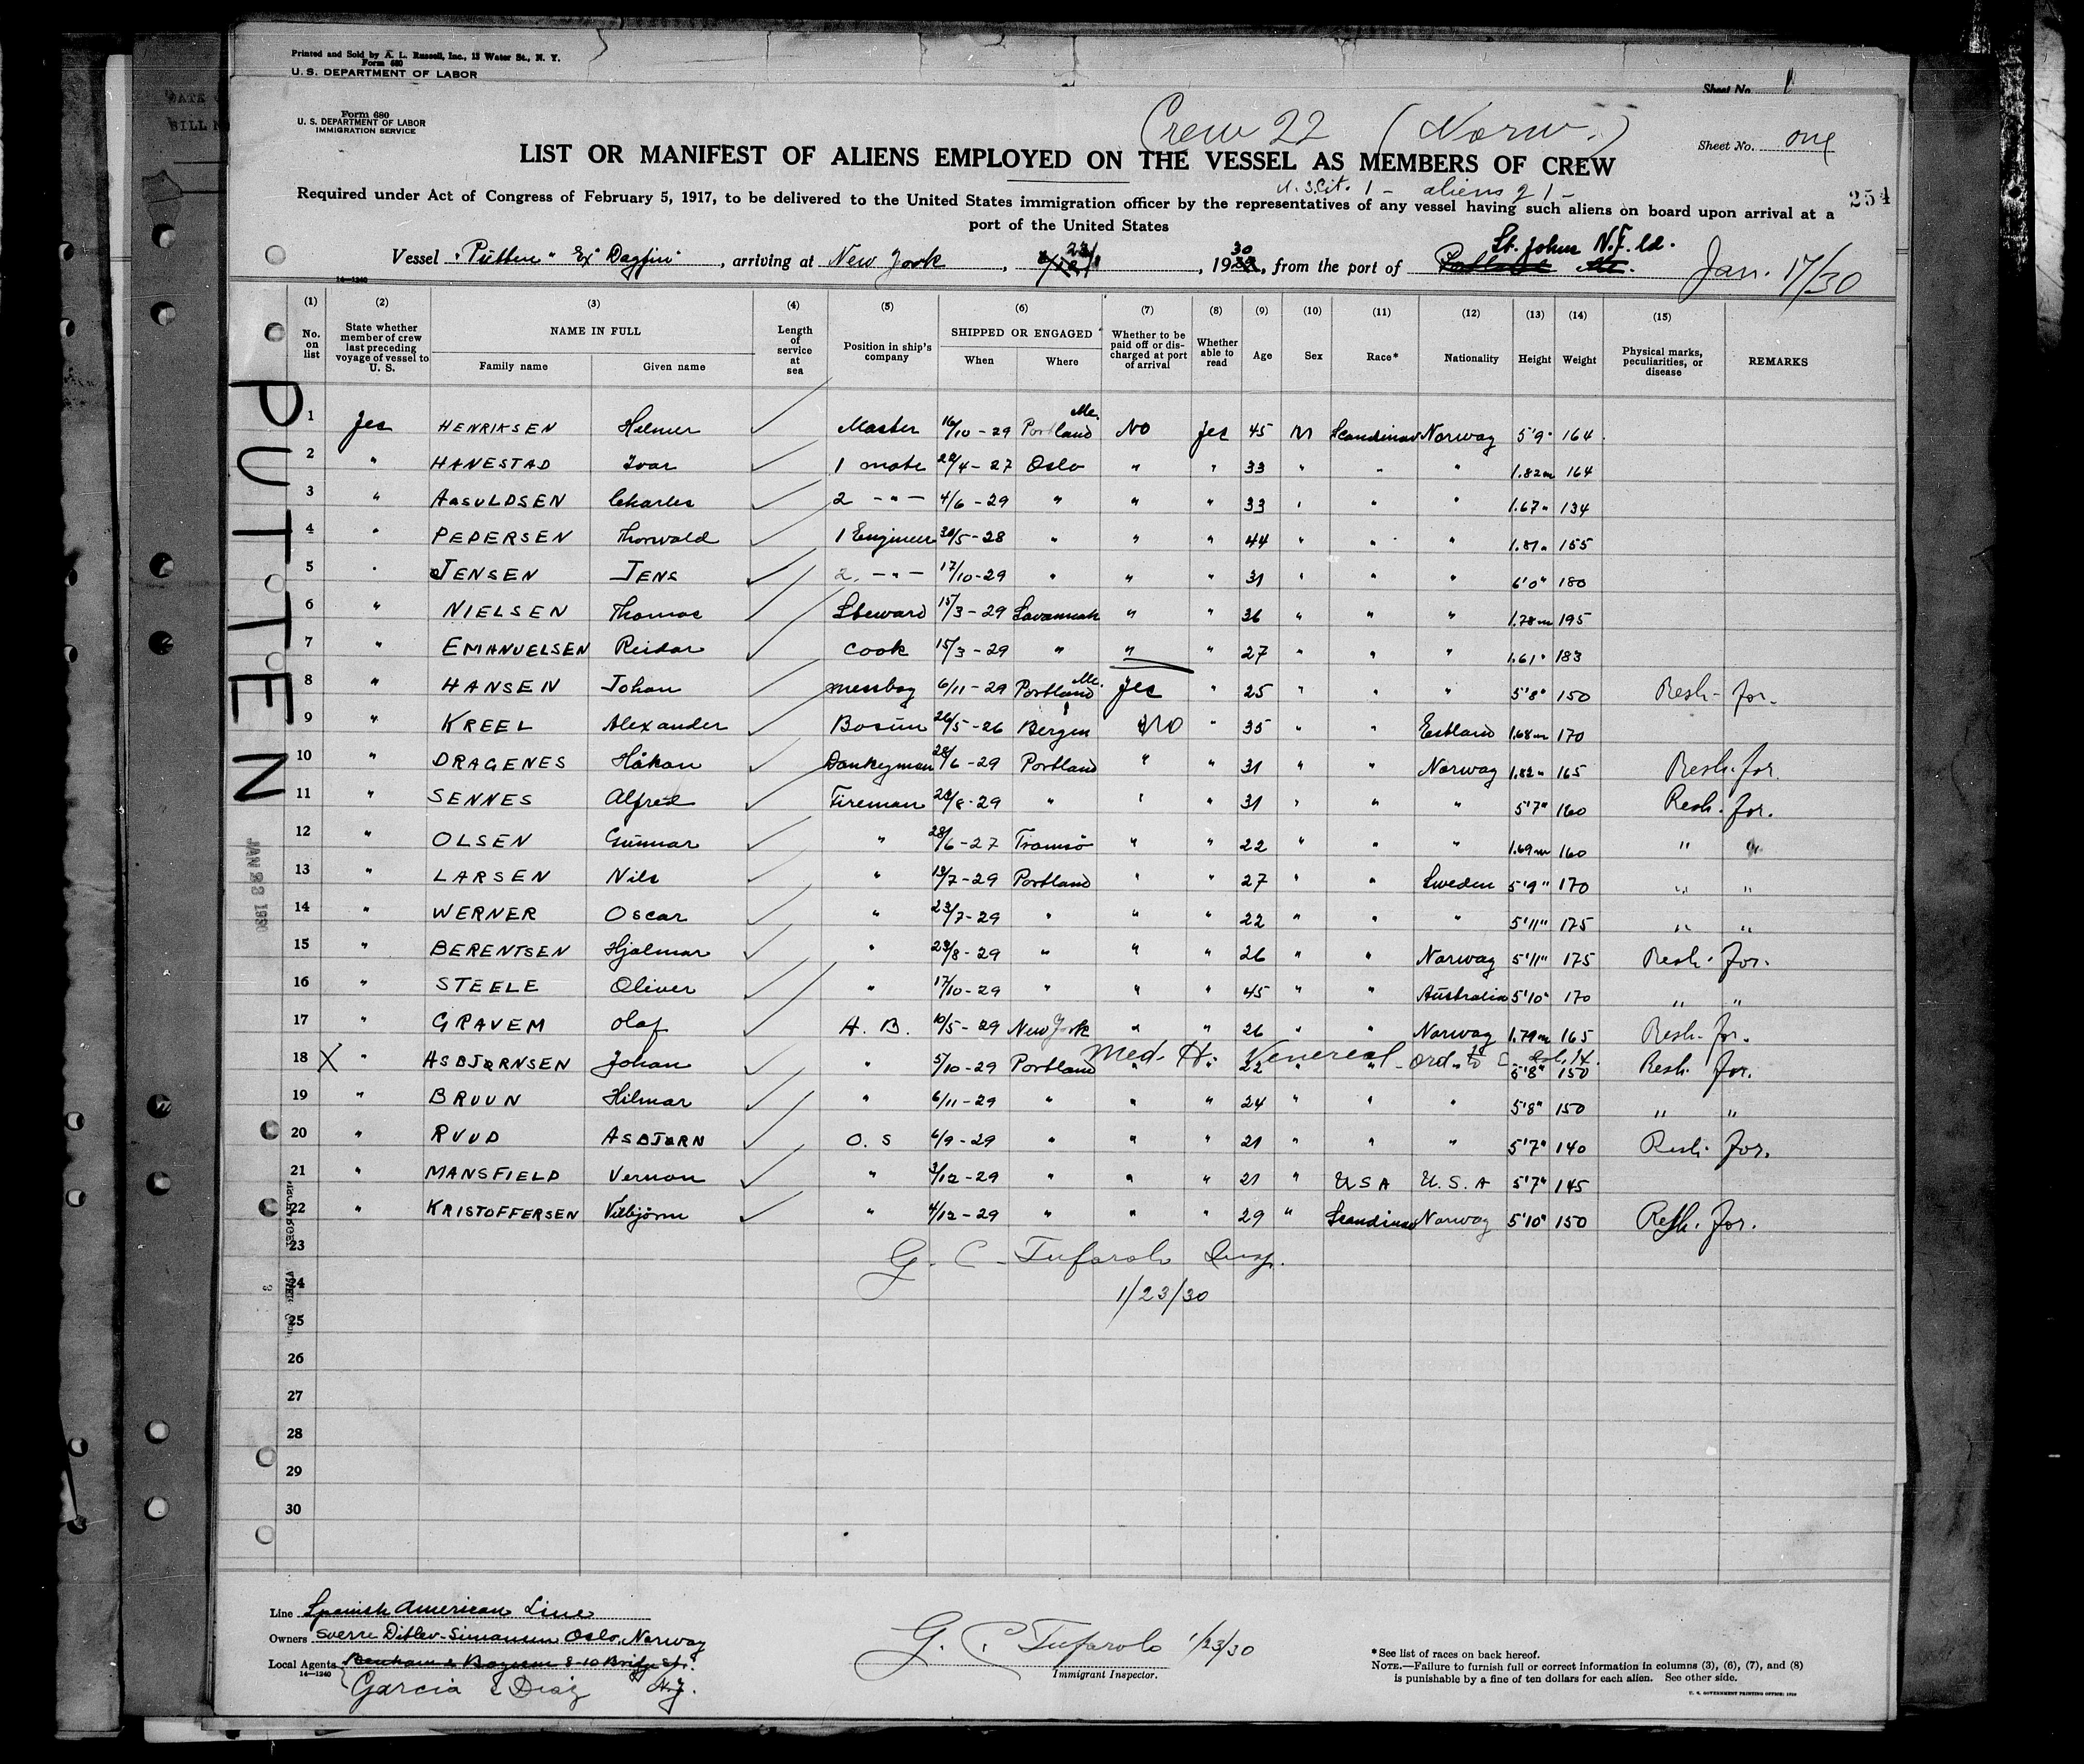 Printed and Sold by A. L. Russell, Inc., 13 Water St., N. Y.
Form 680
U. S. DEPARTMENT OF LABOR
Sheet No. 1
Form 680
U. S. DEPARTMENT OF LABOR
IMMIGRATION SERVICE
Crew 22 (Norw.)
Sheet No. one
LIST OR MANIFEST OF ALIENS EMPLOYED ON THE VESSEL AS MEMBERS OF CREW
U. S. Cit. 1 - aliens 21 -
254
Required under Act of Congress of February 5, 1917, to be delivered to the United States immigration officer by the representatives of any vessel having such aliens on board upon arrival at a
port of the United States
Vessel "Pütten" Ex "Dagfin", arriving at New York, 1930, from the port of St. Johns N.F.ld. Jan. 17/30
14—1240
(1) (2) (3) (4) (5) (6) (7) (8) (9) (10) (11) (12) (13) (14) (15)
No. on list
State whether member of crew last preceding voyage of vessel to U. S.
NAME IN FULL
Family name Given name
Length of service at sea
Position in ship's company
SHIPPED OR ENGAGED
When Where
Whether to be paid off or discharged at port of arrival
Whether able to read
Age Sex Race* Nationality Height Weight
Physical marks, peculiarities, or disease
REMARKS
PUTTEN
JAN 23 1930
1 Yes HENRIKSEN Helmer Master 16/10-29 Portland Me. No Yes 45 M Scandinav Norway 5'9" 164
2 " HANESTAD Ivar 1 mate 22/4-27 Oslo " " 33 " " " 1.82m 164
3 " AASULDSEN Charles 2 -"- 4/6-29 " " " 33 " " " 1.67" 134
4 " PEDERSEN Thorwald 1 Engineer 30/5-28 " " " 44 " " " 1.81" 155
5 " JENSEN JENS 2. -"- 17/10-29 " " " 31 " " " 6'0" 180
6 " NIELSEN Thomas Steward 15/3-29 Savannah " " 36 " " " 1.78m 195
7 " EMANUELSEN Reidar Cook 15/3-29 " " " 27 " " " 1.61" 183
8 " HANSEN Johan messboy 6/11-29 Portland Me. Yes " 25 " " " 5'8" 150 Resh. for.
9 " KREEL Alexander Bosun 26/5-26 Bergen No " 35 " " Estland 1.68m 170
10 " DRAGENES Håkon Donkeyman 28/6-29 Portland " " 31 " " Norway 1.82" 165 Resh. for.
11 " SENNES Alfred Fireman 28/8-29 " " " 31 " " " 5'7" 160 Resh. for.
12 " OLSEN Gunnar " 28/6-27 Tromsö " " 22 " " " 1.69m 160 " "
13 " LARSEN Nils " 13/7-29 Portland " " 27 " " Sweden 5'9" 170 " "
14 " WERNER Oscar " 23/7-29 " " " 22 " " " 5'11" 175 " "
15 " BERENTSEN Hjalmar " 23/8-29 " " " 26 " " Norway 5'11" 175 Resh. for.
16 " STEELE Oliver " 17/10-29 " " " 45 " " Australia 5'10" 170 " "
17 " GRAVEM Olaf A. B. 10/5-29 New York " " 26 " " Norway 1.79m 165 Resh. for.
Med. H: Venereal - ord. to
18 X " ASBJØRNSEN Johan " 5/10-29 Portland " 22 " " " 5'8" 150 Resh. for.
19 " BRUUN Hilmar " 6/11-29 " " " 24 " " " 5'8" 150 " "
20 " RUUD ASBJØRN O. S 6/9-29 " " " 21 " " " 5'7" 140 Resh. for.
21 " MANSFIELD Vernon " 3/12-29 " " " 21 " USA U. S. A 5'7" 145
22 " KRISTOFFERSEN Vilbjörn " 4/12-29 " " " 29 " Scandinav Norway 5'10" 150 Resh. for.
23
G. C. Tufarolo Insp.
24
1/23/30
25
26
27
28
29
30
Line Spanish American Line
Owners Sverre Ditlev-Simonsen Oslo, Norway
Local Agents Benham & Boyesen 8-10 Bridge St.
14—1240
Garcia & Diaz N.Y.
G. C. Tufarolo 1/23/30
Immigrant Inspector.
*See list of races on back hereof.
NOTE.—Failure to furnish full or correct information in columns (3), (6), (7), and (8)
is punishable by a fine of ten dollars for each alien. See other side.